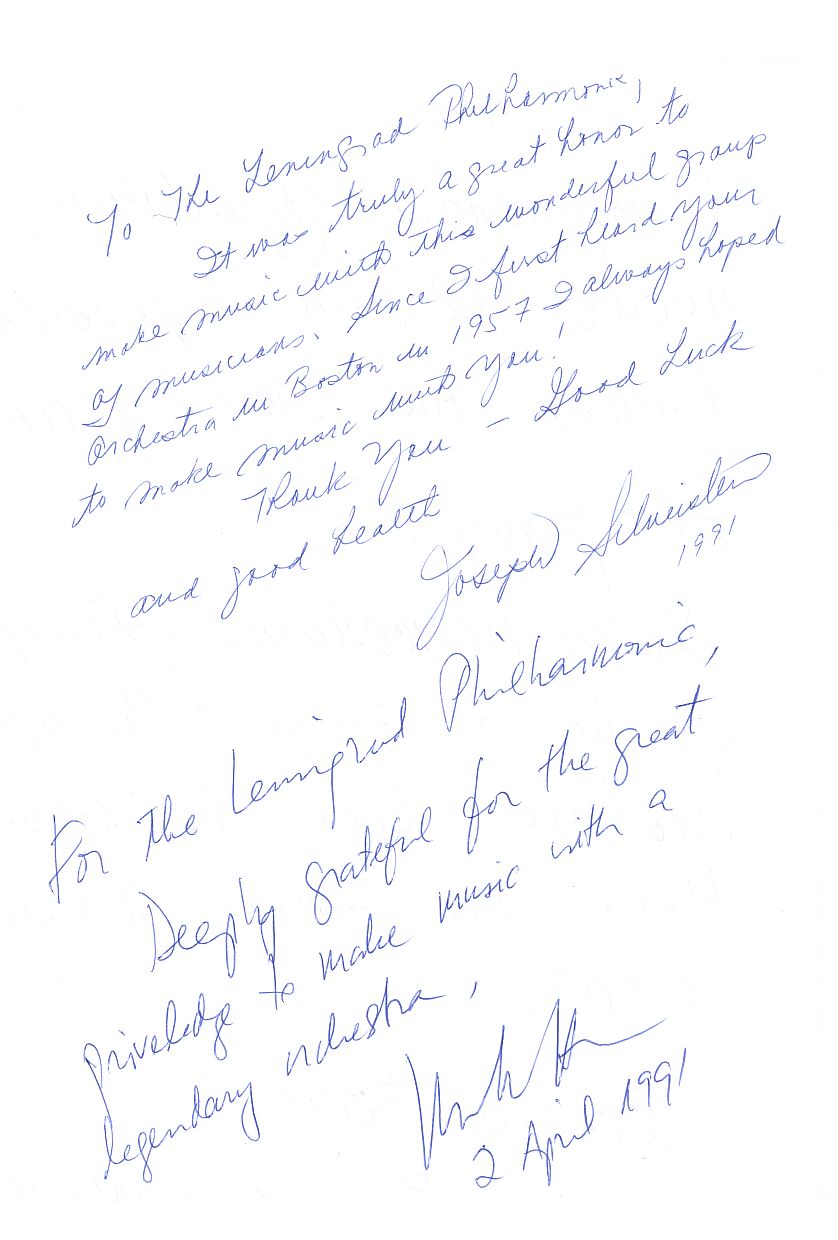 To The Leningrad Philharmonic,
It was truly a great honor to
make music with this wonderful group
of musicians. Since I first heard your
Orchestra in Boston in 1957 I always hoped
to make music with You!
Thank You – Good Luck
and good health
Joseph Silverstein
1991
For the Leningrad Philharmonic,
Deeply grateful for the great
priveledge to make music with a
legendary orchestra,
2 April 1991